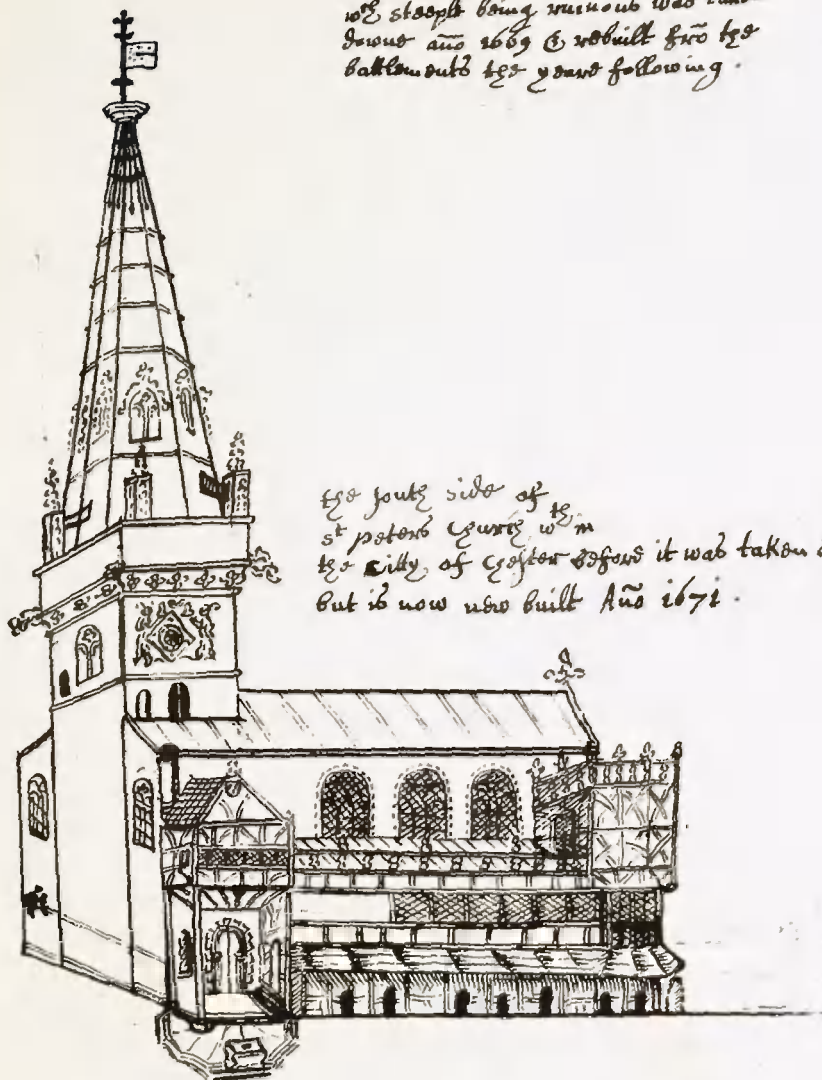 wch steeple being ruinous was
downe año 1669 & rebuilt frō the
battlements the yeare following .
the south side of
st peters church wthin
the Citty of Chester before it was taken
but is now new built Año 1671 .